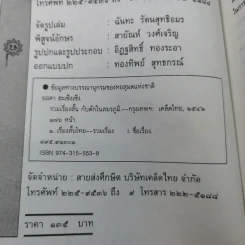 โทรศัพท์ ๒๒๕-๙๕๓๖-๔๐
จัดรูปเล่ม : ฉันทะ รัตนสุทธิอมร
พิสูจน์อักษร : สายัณห์ วงศ์เจริญ
รูปปกและรูปประกอบ : อิฏฐสิทธิ์ ทองระอา
ออกแบบปก : ทองทิพย์ สุทธกรณ์
ข้อมูลทางบรรณานุกรมของหอสมุดแห่งชาติ
รวมเรื่องสั้น กับดักในสมรภูมิ.--กรุงเทพฯ: เคล็ดไทย, ๒๕๔๒
๑๓๖ หน้า.
๑. เรื่องสั้นไทย--รวมเรื่อง I. ชื่อเรื่อง.
ISBN 974-315-553-8
จัดจำหน่าย : สายส่งศึกษิต บริษัทเคล็ดไทย จำกัด
โทรศัพท์ ๒๒๕-๙๕๓๖ ถึง ๙ โทรสาร ๒๒๒-๕๑๘๘
ราคา ๑๓๕ บาท